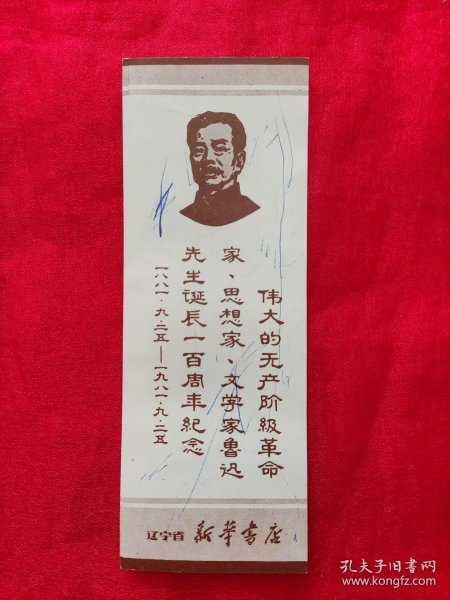 伟大的无产阶级革命
家、思想家、文学家鲁迅
先生诞辰一百周年纪念
一八八一·九·二五——一九八一·九·二五
辽宁省 新华书店
孔夫子旧书网
www.kongfz.com